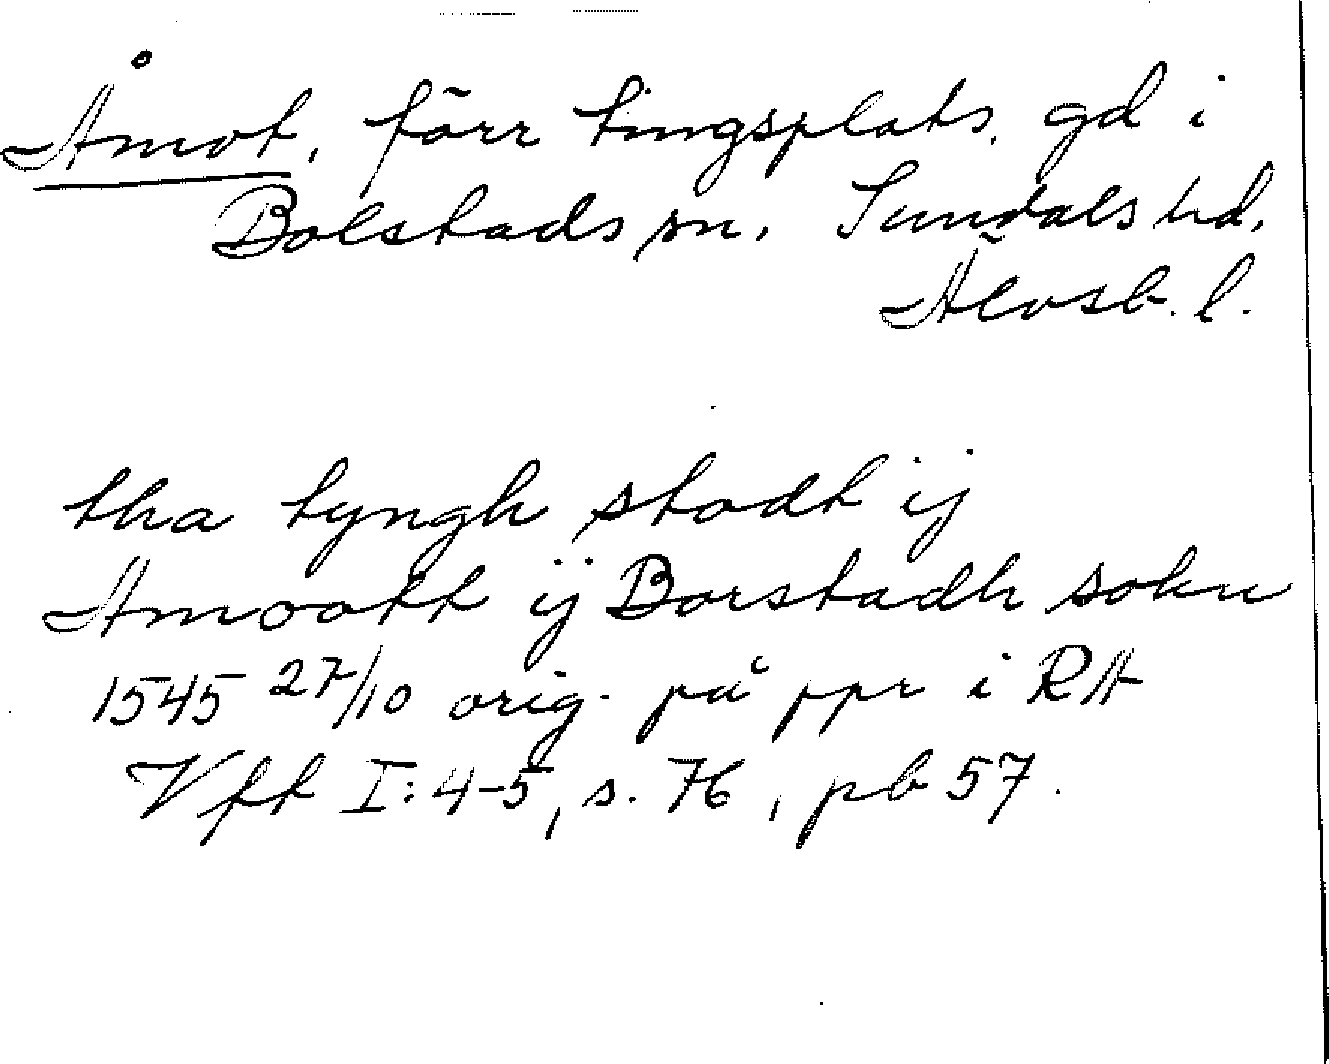 Åmot, förr tingsplats, gd i
Bolstads sn. Sundals hd,
Älvsb. l.
tha tyngh stodt ij
Amoott ij Borstadh sokn
1545 27/10 orig. på ppr i RA
Vft I: 4-5, s. 76, pb 57.